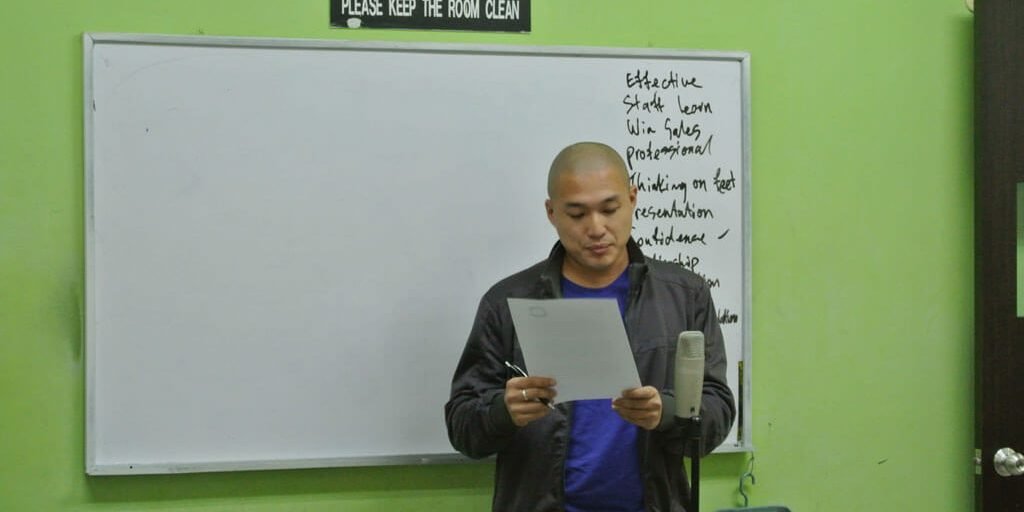 PLEASE KEEP THE ROOM CLEAN
Effective
Staff Learn
Win Sales
professional
Thinking on feet
resentation
onfidence ✓